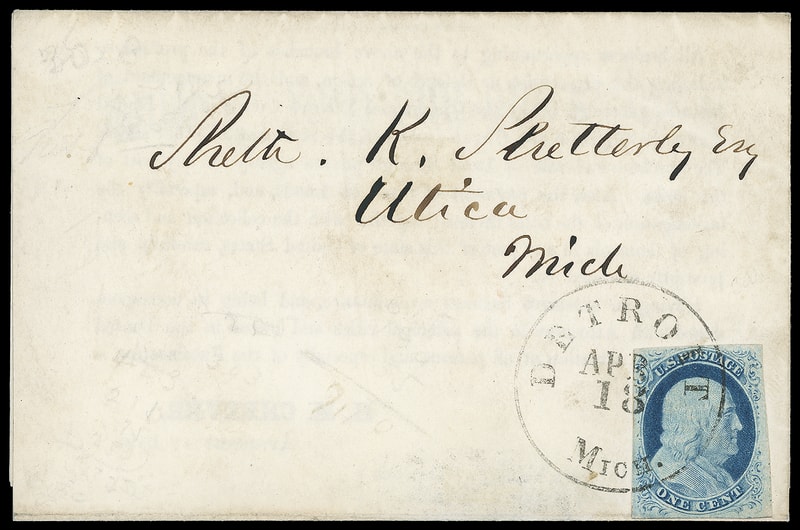 Sheth. K. Shetterly Esq
Utica
Mich
DETROIT
APR
18
MICH.
U.S. POSTAGE
ONE CENT